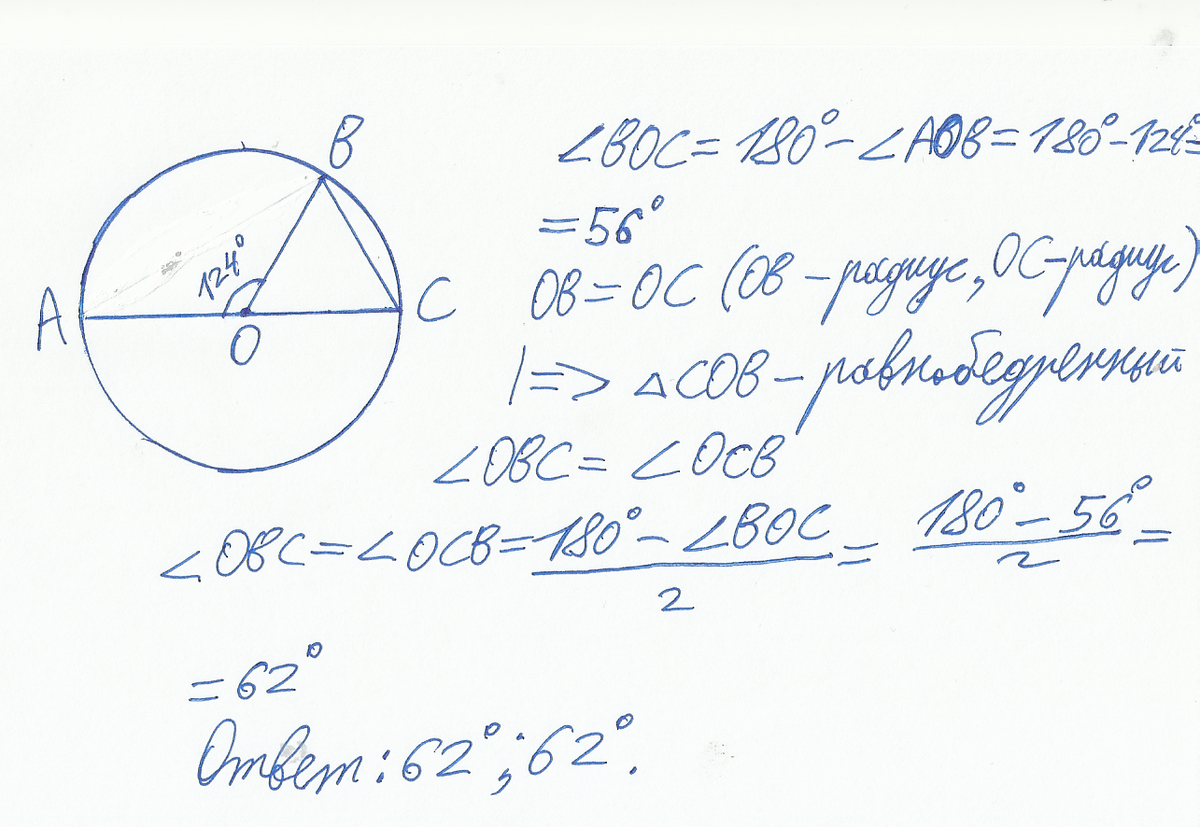 B
A
124°
O
C
∠BOC = 180° - ∠AOB = 180° - 124° =
= 56°
OB = OC (OB - радиус, OC - радиус)
|=> △COB - равнобедренный
∠OBC = ∠OCB
∠OBC = ∠OCB = (180° - ∠BOC)/2 = (180° - 56°)/2 =
= 62°
Ответ: 62°; 62°.